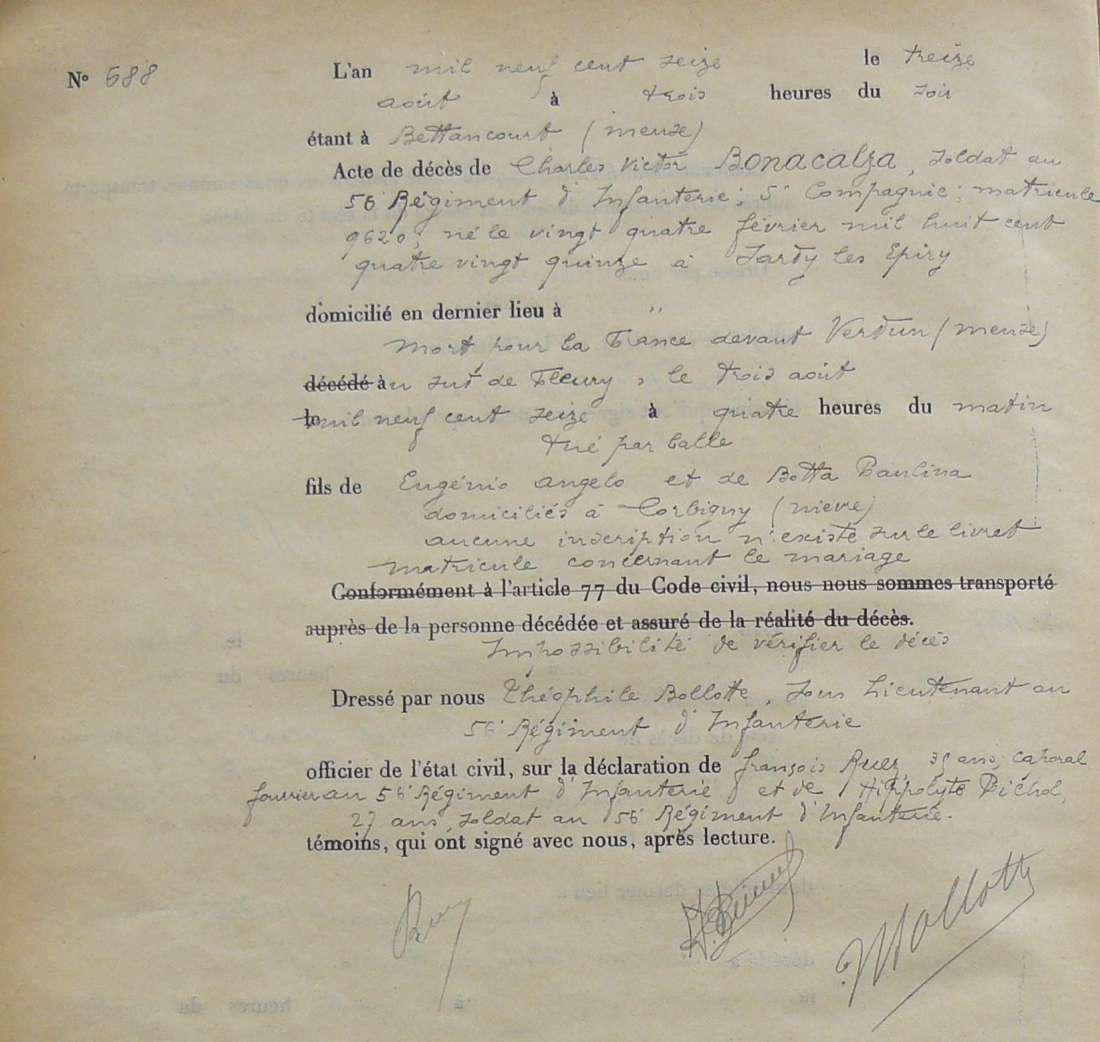 N° 588
L'an mil neuf cent seize le treize
août à trois heures du soir
étant à Bettancourt (meuse)
Acte de décès de Charles Victor Bonacalza, soldat au
56 Régiment d'Infanterie; 5e Compagnie; matricule
9620, né le vingt quatre février mil huit cent
quatre vingt quinze à Sardy les Epiry
domicilié en dernier lieu à "
Mort pour la France devant Verdun (meuse)
décédé à au sud de Fleury, le trois août
le mil neuf cent seize à quatre heures du matin
tué par balle
fils de Eugénio Angelo et de Botta Paulina
domiciliés à Corbigny (nièvre)
aucune inscription n'existe sur le livret
matricule concernant le mariage
Conformément à l'article 77 du Code civil, nous nous sommes transporté
auprès de la personne décédée et assuré de la réalité du décès.
Impossibilité de vérifier le décès
Dressé par nous Théophile Bollotte, Sous Lieutenant au
56e Régiment d'Infanterie
officier de l'état civil, sur la déclaration de françois 35 ans, caporal
fourrier au 56e Régiment d'Infanterie et de Hippolyte
27 ans, soldat au 56e Régiment d'Infanterie.
témoins, qui ont signé avec nous, après lecture.
Bollotte